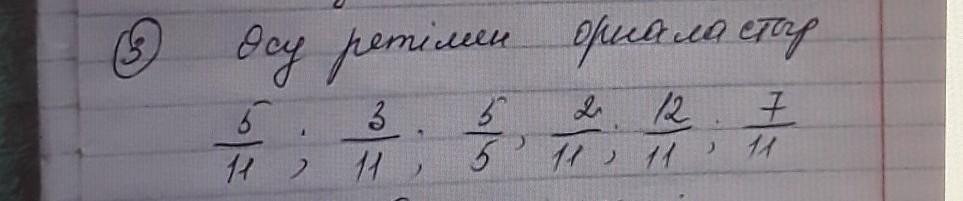 ③ Өсу ретімен орналастыр
5/11; 3/11; 5/5, 2/11; 12/11; 7/11